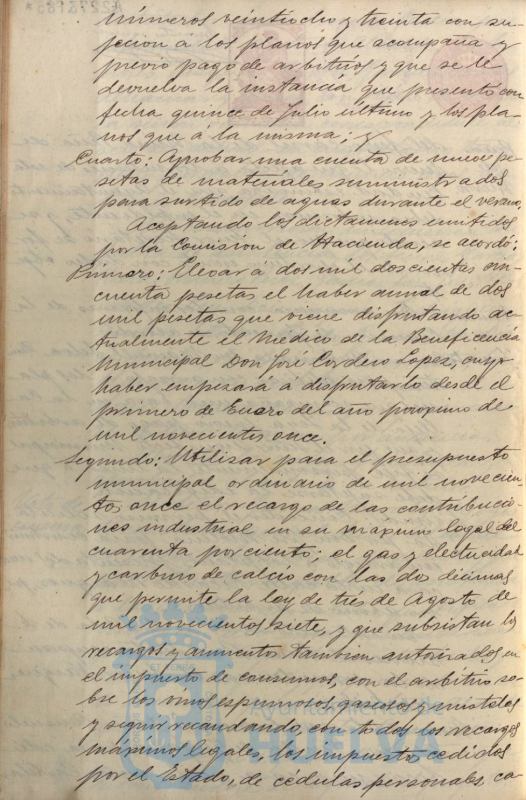 números veintiocho y treinta con su-
jecion á los planos que acompaña y
previo pago de arbitrios y que se le
devuelva la instancia que presentó con
fecha quince de Julio último y los pla-
nos que á la misma; y
Cuarto: Aprobar una cuenta de nueve pe-
setas de materiales suministrados
para surtido de aguas durante el verano.
Aceptando los dictamenes emitidos
por la Comision de Hacienda, se acordó:
Primero: Elevar á dos mil doscientas cin-
cuenta pesetas el haber anual de dos
mil pesetas que viene disfrutando ac-
tualmente el Médico de la Beneficencia
Municipal Don José Cordero Lopez, cuyo
haber empezará á disfrutarlo desde el
primero de Enero del año próximo de
mil novecientos once.
Segundo: Utilizar para el presupuesto
municipal ordinario de mil novecien-
tos once el recargo de las contribucio-
nes industrial en su máximo legal del
cuarenta por ciento; el gas y electricidad
y carburo de calcio con las dos décimas
que permite la ley de tres de Agosto de
mil novecientos siete, y que subsistan los
recargos y aumentos tambien autorizados en
el impuesto de consumos, con el arbitrio so-
bre los vinos espumosos, gaseosos y mistelas
y seguir recaudando, con todos los recargos
máximos legales, los impuestos cedidos
por el Estado, de cédulas personales, ca-